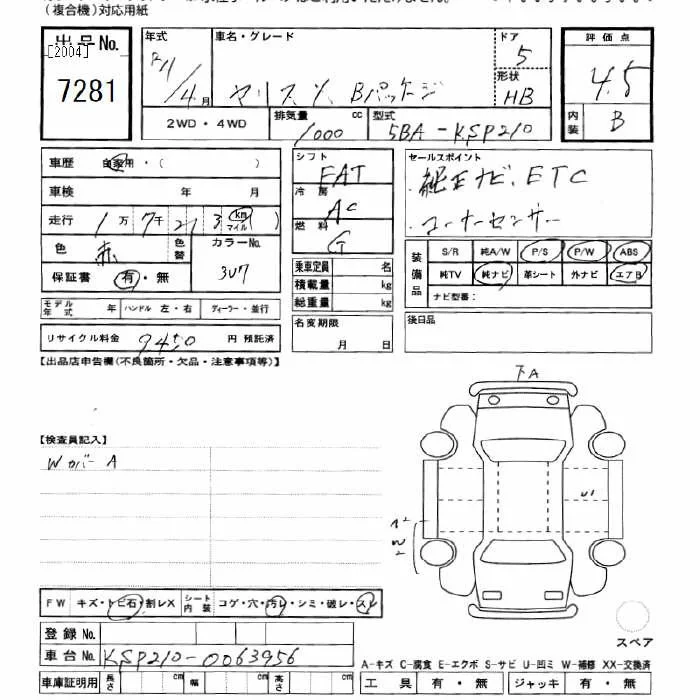 (複合機)対応用紙
出品No.
[2004]
7281
年式
/4月
車名・グレード
ヤリス X Bパッケージ
ドア
5
形状
HB
2WD・4WD
排気量 cc
1000
型式
5BA-KSP210
評価点
4.5
内装
B
車歴 自家用・( )
車検 年 月
走行 1万7千 km マイル
色 赤
色替
カラーNo.
3U7
保証書 有・無
モデル年式 年 ハンドル 左・右 ディーラー・並行
リサイクル料金 9450 円 預託済
シフト
FAT
冷房
AC
燃料
G
乗車定員 名
積載量 kg
総重量 kg
名変期限
月 日
セールスポイント
・純正ナビ、ETC
・コーナーセンサー
装備品
S/R 純A/W P/S P/W ABS
純TV 純ナビ 革シート 外ナビ エアB
ナビ型番:
後日品
【出品店申告欄(不良箇所・欠品・注意事項等)】
【検査員記入】
Wカバー A
下A
U1
A2
W2
スペア
FW キズ・トビ石・割レX シート内装 コゲ・穴・汚レ・シミ・破レ・スレ
登録No.
車台No. KSP210-0063956
車庫証明用 長さ cm 幅 cm 高さ cm
A-キズ C-腐食 E-エクボ S-サビ U-凹ミ W-補修 XX-交換済
工具 有・無 ジャッキ 有・無